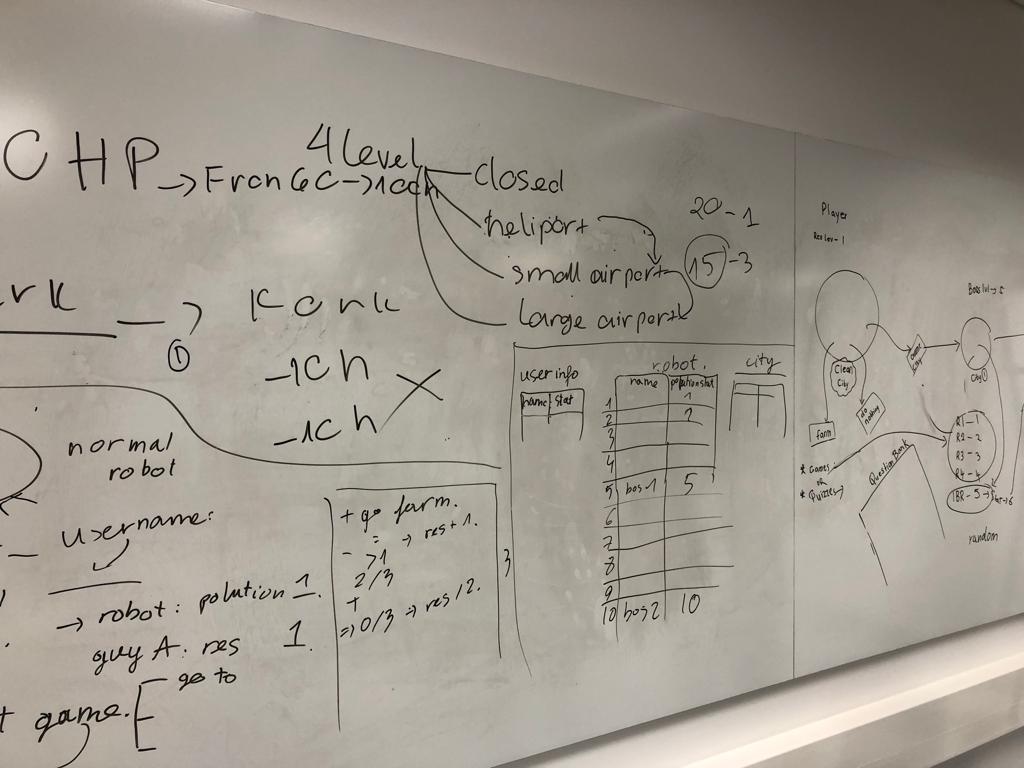 CHP
4 level
closed
heliport
small airport
large airport
20-1
15-3
ork
①
Kork
-1ch
-1ch
normal
robot
username:
→ robot: polution 1.
guy A: res 1.
go to
game.
+ go farm.
→ res+1.
>1
2/3
+
⇒ 0/3 → res/2.
3
user info
name stat
robot.
name polutionstat
1 1
2 2
3
4
5 bos1 5
6
7
8
9
10 bos2 10
city
Player
Res lev-1
Clean
City
farm
do
nothing
* Games
or
* Quizzes →
Question Bank
City①
R1-1
R2-2
R3-3
R4-4
random